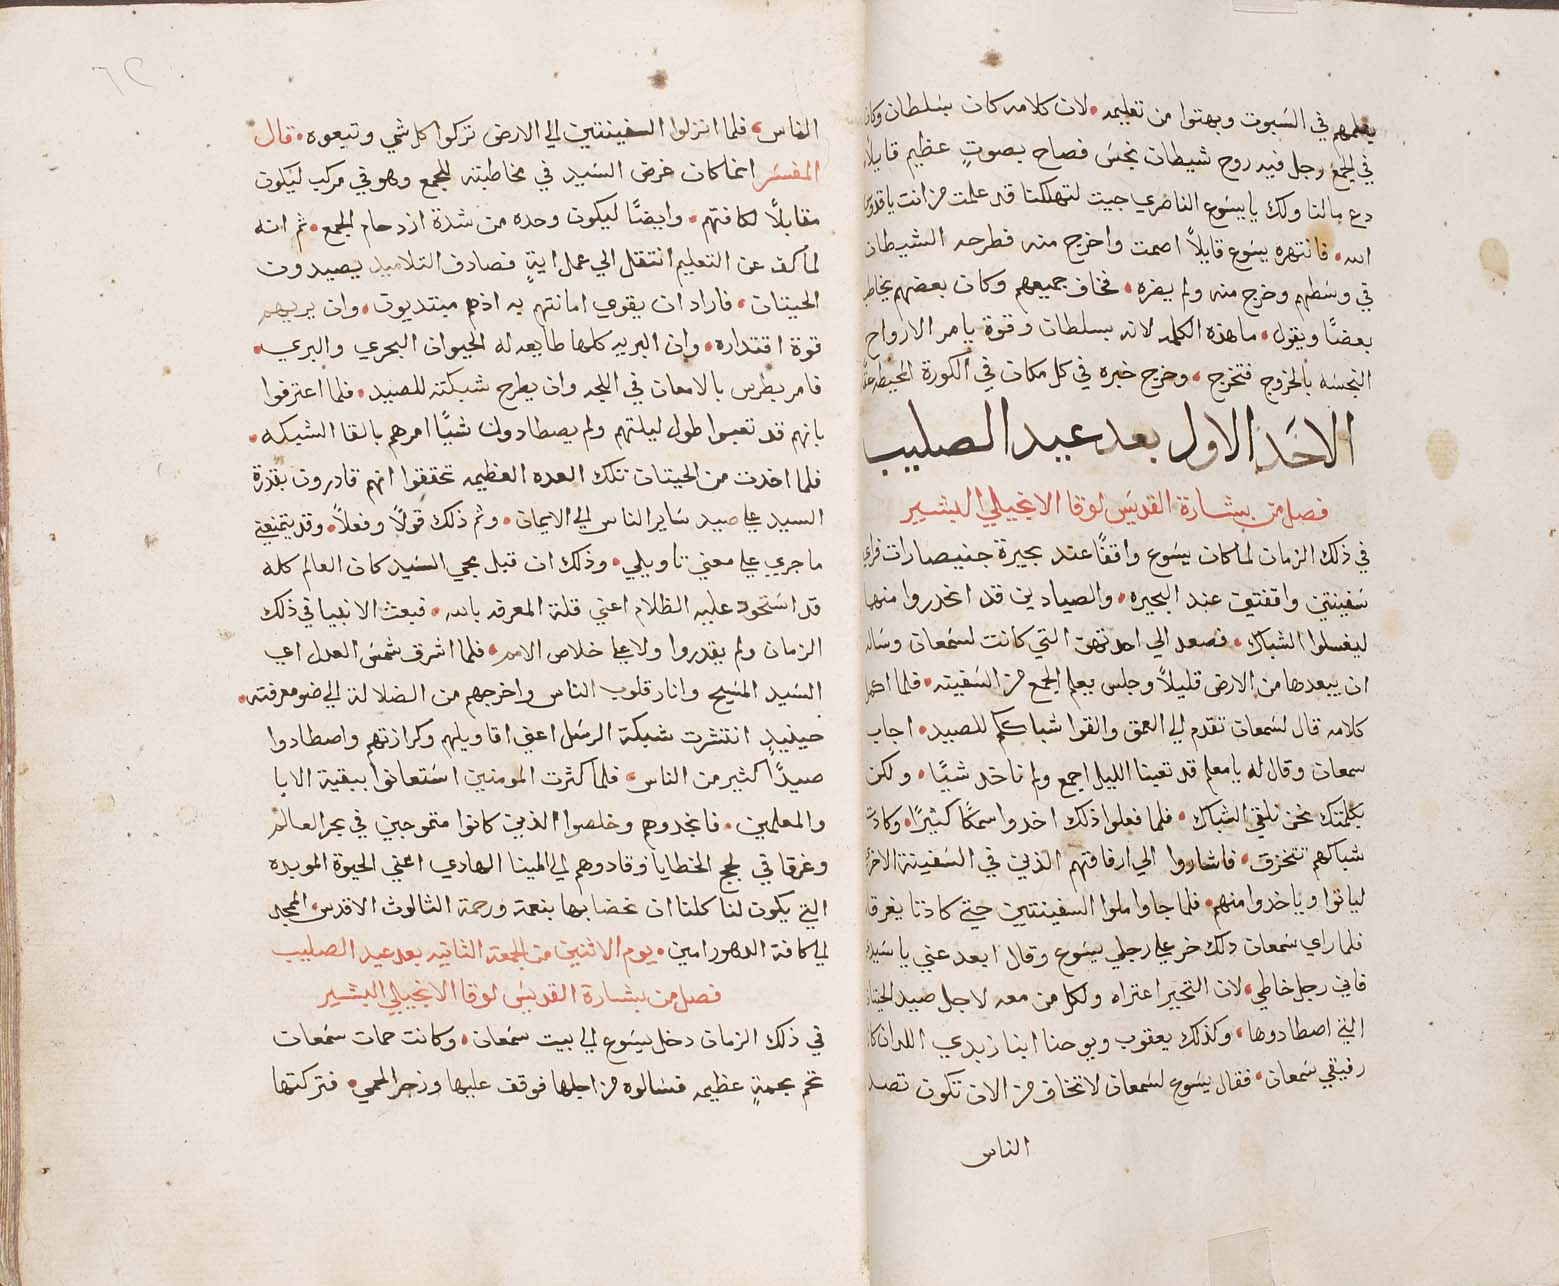 يعلمهم في السبوت وبهتوا من تعليمه • لان كلامه كان بسلطان وكان
في الجمع رجل فيه روح شيطان نجس فصاح بصوتٍ عظيم قايلاً
دع مالنا ولك يا يسوع الناصري جيت لتهلكنا قد علمت من انت يا قدوس
الله • فانتهره يسوع قايلاً اصمت واخرج منه فطرحه الشيطان
في وسطهم وخرج منه ولم يضره • فخاف جميعهم وكان بعضهم يخاطب
بعضًا ويقول • ما هذه الكلمه لانه بسلطان وقوة يامر الارواح
النجسه بالخروج فتخرج • وخرج خبره في كل مكان في الكورة المحيطه
الاحَد الاول بعد عيد الصليب
فصل من بشارة القديس لوقا الانجيلي البشير
في ذلك الزمان لما كان يسوع واقفًا عند بحيرة جنيصارات فراي
سَفينتين واقفتين عند البحيره • والصيادين قد انحدروا منها
ليغسلوا الشباك • فصعد الي احدتهن التي كانت لسَمعان وسَاله
ان يبعدها من الارض قليلاً وجلس يعلم الجمع من السَفينه • فلما اكمل
كلامه قال لسَمعان تقدم الي العمق والقوا شباككم للصيد • اجاب
سمعان وقال له يا معلم قد تعبنا الليل اجمع ولم ناخد شيًا • ولكن
بكلمتك نحن نلقي الشباك • فلما فعلوا ذلك اخدوا سمكًا كثيرًا • وكادت
شباكهم تتخزق • فاشاروا الي ارفاقتهم الذين في السَفينة الاخري
لياتوا وياخدوا منهم • فلما جاوا ملوا السفينتين حتي كادتا يغرقا
فلما راي سَمعان دلك خر علي رجلي يسَوع وقال ابعد عني يا سَيدي
فاني رجل خاطي • لان التحير اعتراه ولكل من معه لاجل صيد الحيتان
التي اصطادوها • وكذلك يعقوب ويوحنا ابنا زبدي اللدان كانا
رفيقي سَمعان • فقال يسَوع لسَمعان لا تخاف من الان تكون تصد
الناس
الناس • فلما انزلوا السفينتين الي الارض تركوا كل شي وتبعوه • قال
المفسَر انما كان غرض السَيد في مخاطبته للجمع وهو في مركب ليكون
مقابلاً لكافتهم • وايضًا ليكون وحده من شدة ازدحام الجمع • ثم انه
لما كف عن التعليم انتقل الي عمل ايةٍ فصادف التلاميد يصيدون
الحيتان • فاراد ان يقوي امانتهم به اذهم مبتديون • وان يريهم
قوة اقتداره • وان البريه كلها طايعه له الحيوان البحري والبري •
فامر بطرس بالامعان في اللجه وان يطرح شبكته للصيد • فلما اعترفوا
بانهم قد تعبوا طول ليلتهم ولم يصطادون شيًا امرهم بالقا الشبكه •
فلما اخدت من الحيتان تلك العده العظيمه تحققوا انهم قادرون بقدرة
السيد علي صيد سَاير الناس الي الايمان • وثم ذلك قولاً وفعلاً •
ما جري علي معني تاويلي • وذلك ان قبل مجي السَيد كان العالم كله
قد استَحود عليه الظلام اعني قلة المعرفه بالله • فبعث الانبيا في ذلك
الزمان ولم يقدروا ولا علي خلاص الامه • فلما اشرق شمسَ العدل اعي
السَيد المسَيح وانار قلوب الناس واخرجهم من الضلالة الي ضو معرفته •
حينيدٍ انتشرت شبكة الرسَل اعني اقاويلهم وكرازتهم واصطادوا
صيدًا كثير من الناس • فلما كثرت المومنين استَعانوا ببقية الابا
والمعلمين • فانجدوهم وخلصوا الذين كانوا متموجين في بحر العالم
وغرقا في لجج الخطايا وقادوهم الي المينا الهادي اعني الحيوة الموبده
التي يكون لنا كلنا ان نحضا بها بنعمة ورحمة الثالوث الاقدس • المجد
الي كافة الدهور امين • يوم الاثنين من الجمعة الثانيه بعد عيد الصليب
فصل من بشارة القديسَ لوقا الانجيلي البشير
في ذلك الزمان دخل يسَوع الي بيت سَمعان • وكانت حمات سَمعان
تحم بحمةٍ عظيمه فسَالوه من اجلها فوقف عليها وزجر الحمي • فتركتها